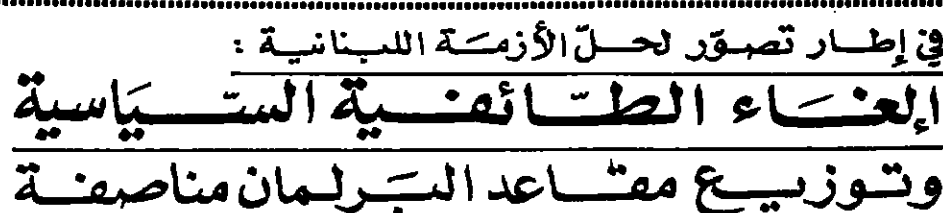 في إطار تصوّر لحلّ الأزمة اللبنانية :
إلغاء الطّائفية السّياسية
وتوزيع مقاعد البرلمان مناصفة